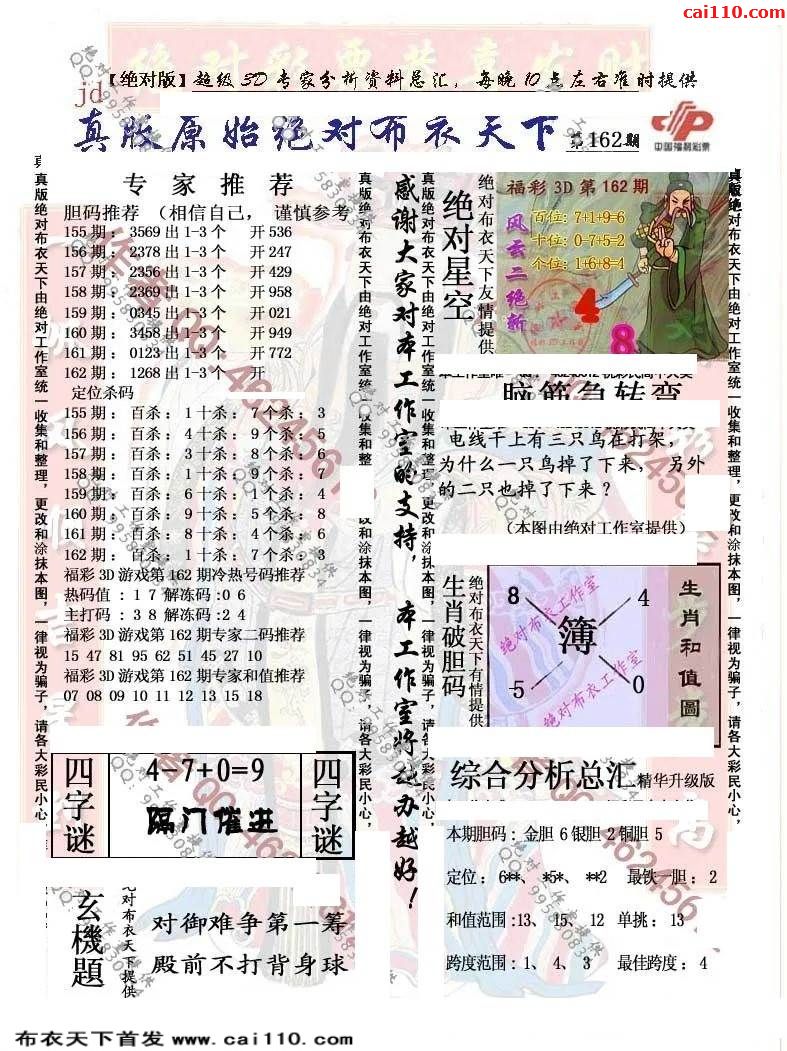 cai110.com
【绝对版】超级3D专家分析资料总汇，每晚10点左右准时提供
jd
真版原始绝对布衣天下 第162期
中国福利彩票
专家推荐
胆码推荐 （相信自己， 谨慎参考
155期： 3569出1-3个 开536
156期： 2378出1-3个 开247
157期： 2356出1-3个 开429
158期： 2369出1-3个 开958
159期： 0345出1-3个 开021
160期： 3458出1-3个 开949
161期： 0123出1-3个 开772
162期： 1268出1-3个 开
定位杀码
155期： 百杀：1十杀：7个杀：3
156期： 百杀：4十杀：9个杀：5
157期： 百杀：3十杀：8个杀：6
158期： 百杀：1十杀：9个杀：7
159期： 百杀：6十杀：1个杀：4
160期： 百杀：9十杀：5个杀：8
161期： 百杀：8十杀：4个杀：6
162期： 百杀：1十杀：7个杀：3
福彩3D游戏第162期冷热号码推荐
热码值：17解冻码:06
主打码：38解冻码:24
福彩3D游戏第162期专家二码推荐
15 47 81 95 62 51 45 27 10
福彩3D游戏第162期专家和值推荐
07 08 09 10 11 12 13 15 18
真版绝对布衣天下由绝对工作室统一收集和整理，更改和涂抹本图，一律视为骗子，请各大彩民小心，
真版绝对布衣天下由绝对工作室统一收集和整
改和涂抹本图，一律视为骗子，请各大彩民小心，
感谢大家对本工作室的支持，本工作室将越办越好！
真版绝对布衣天下由绝对工作室统一收集和整理，更改和涂抹本图，一律视为骗子，请各大彩民小心，
绝对星空
绝对布衣天下友情提供
福彩3D第162期
风云二绝斩
百位:7+1+9=6
十位:0-7+5=2
个位:1+6+8=4
4
8
脑筋急转弯
电线干上有三只鸟在打架，
为什么一只鸟掉了下来，另外
的二只也掉了下来？
（本图由绝对工作室提供）
生肖破胆码
绝对布衣天下有情提供
8
4
簿
5
0
绝对布衣工作室
绝对布衣工作室
生肖和值圖
真版绝对布衣天下由绝对工作室统一收集和整理，更改和涂抹本图，一律视为骗子，请各大彩民小心，
四字谜
4-7+0=9
隔门催进
四字谜
玄機題
绝对布衣天下提供
对御难争第一筹
殿前不打背身球
综合分析总汇 精华升级版
本期胆码：金胆 6 银胆 2 铜胆 5
定位：6**、 *5*、 **2 最铁一胆：2
和值范围:13、 15、 12 单挑：13
跨度范围：1、 4、 3 最佳跨度：4
布衣天下首发 www.cai110.com